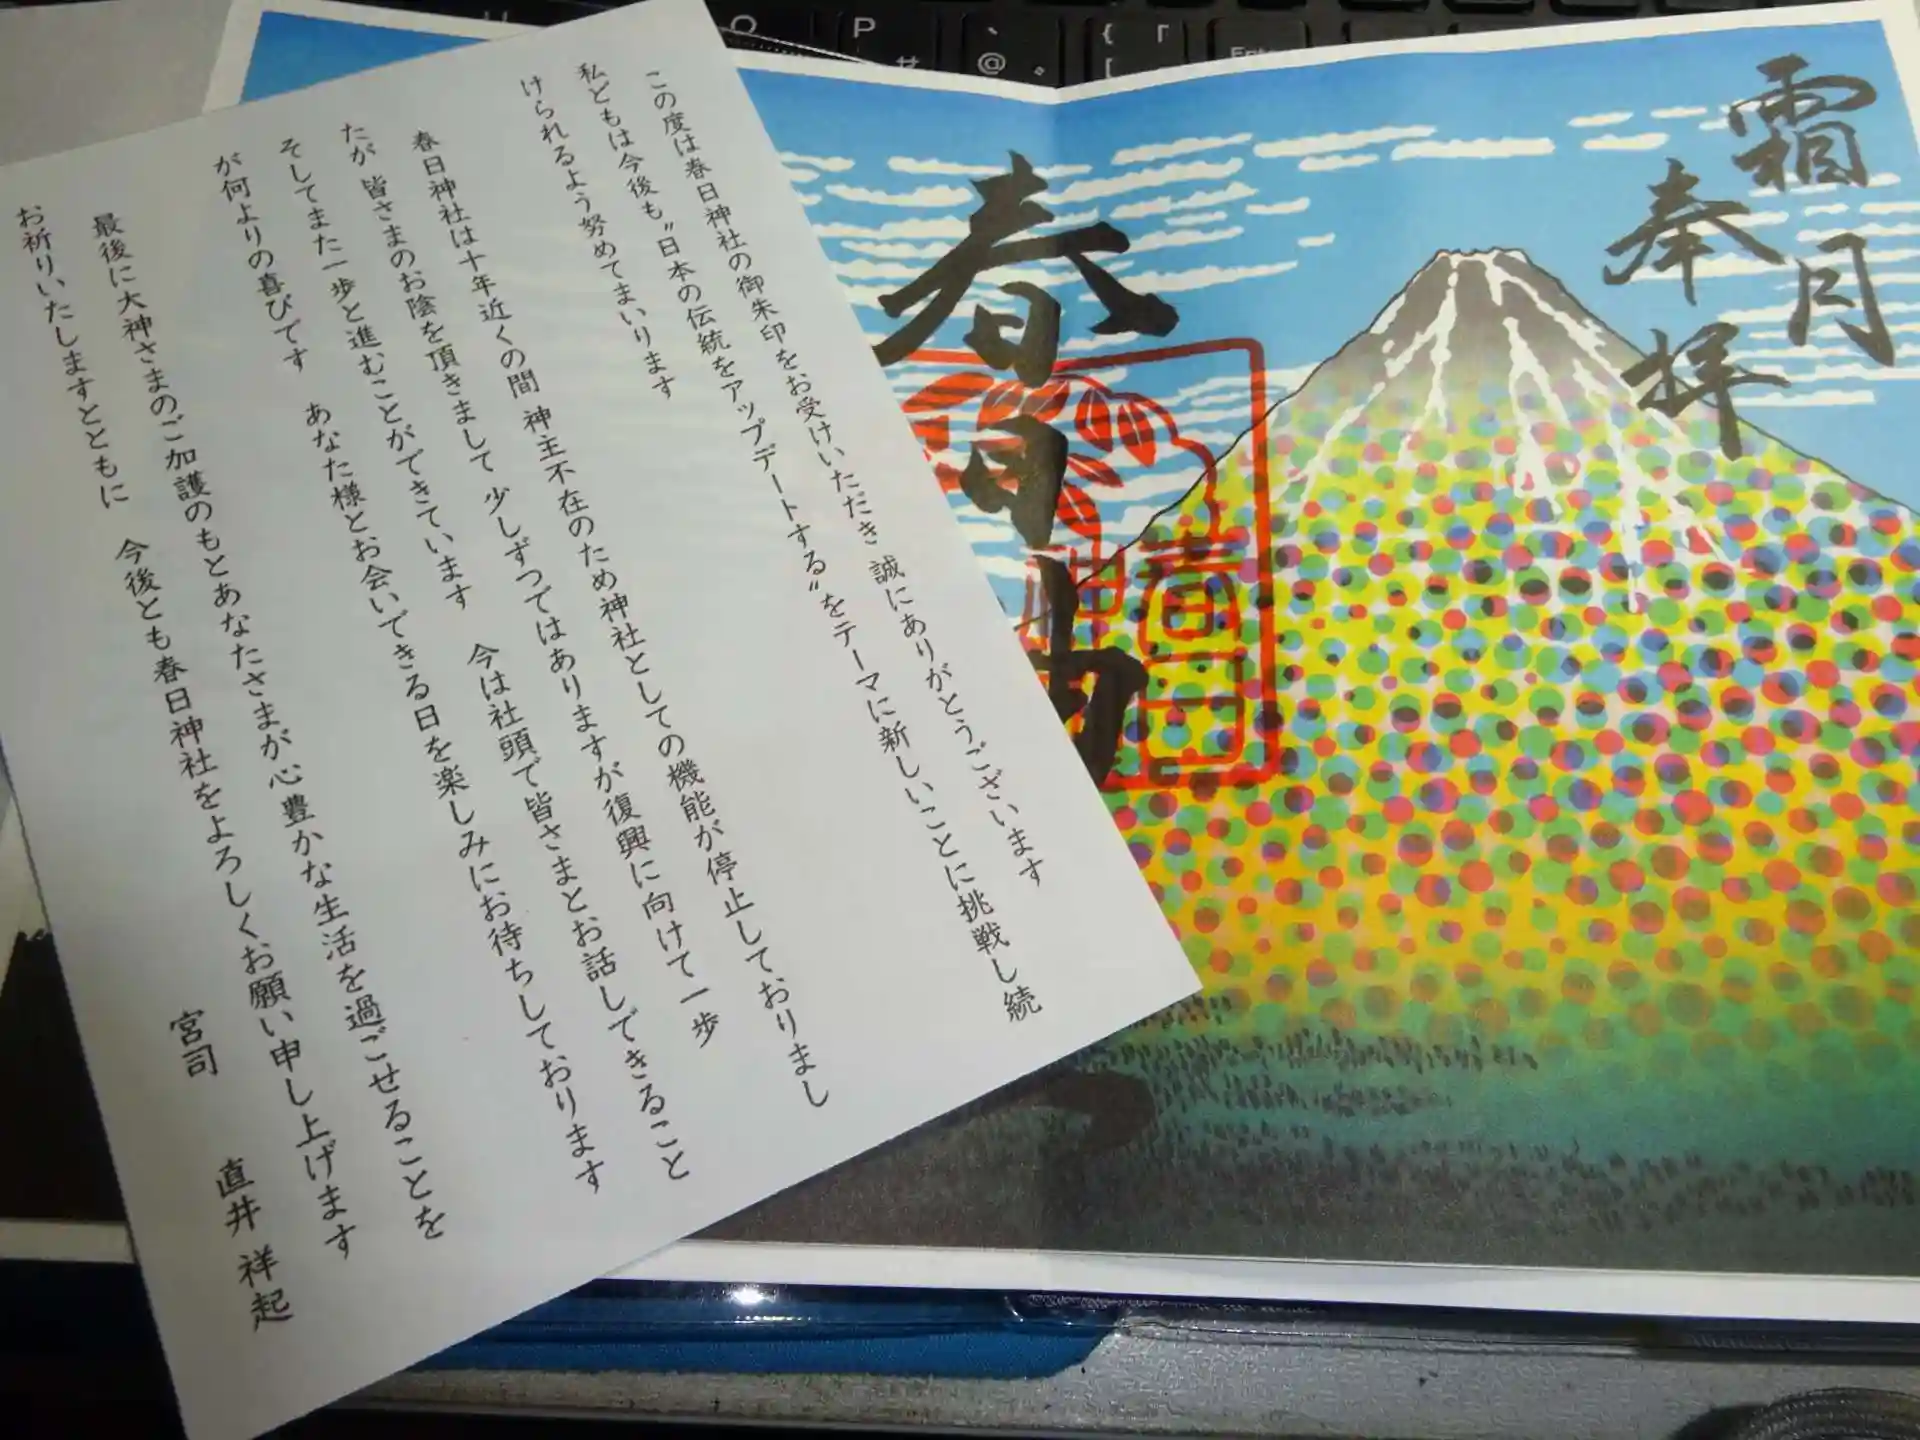 霜月
奉拝
春日神
春日
この度は春日神社の御朱印をお受けいただき 誠にありがとうございます
私どもは今後も〝日本の伝統をアップデートする〟をテーマに新しいことに挑戦し続
けられるよう努めてまいります
春日神社は十年近くの間 神主不在のため神社としての機能が停止しておりまし
たが 皆さまのお陰を頂きまして 少しずつではありますが復興に向けて一歩
そしてまた一歩と進むことができています 今は社頭で皆さまとお話しできること
が何よりの喜びです あなた様とお会いできる日を楽しみにお待ちしております
最後に大神さまのご加護のもとあなたさまが心豊かな生活を過ごせることを
お祈りいたしますとともに 今後とも春日神社をよろしくお願い申し上げます
宮司 直井 祥起
O
P
せ
@
゛
{
「
[
Enter